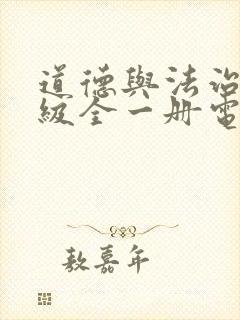 道德與法治
級全一册電
敖嘉年